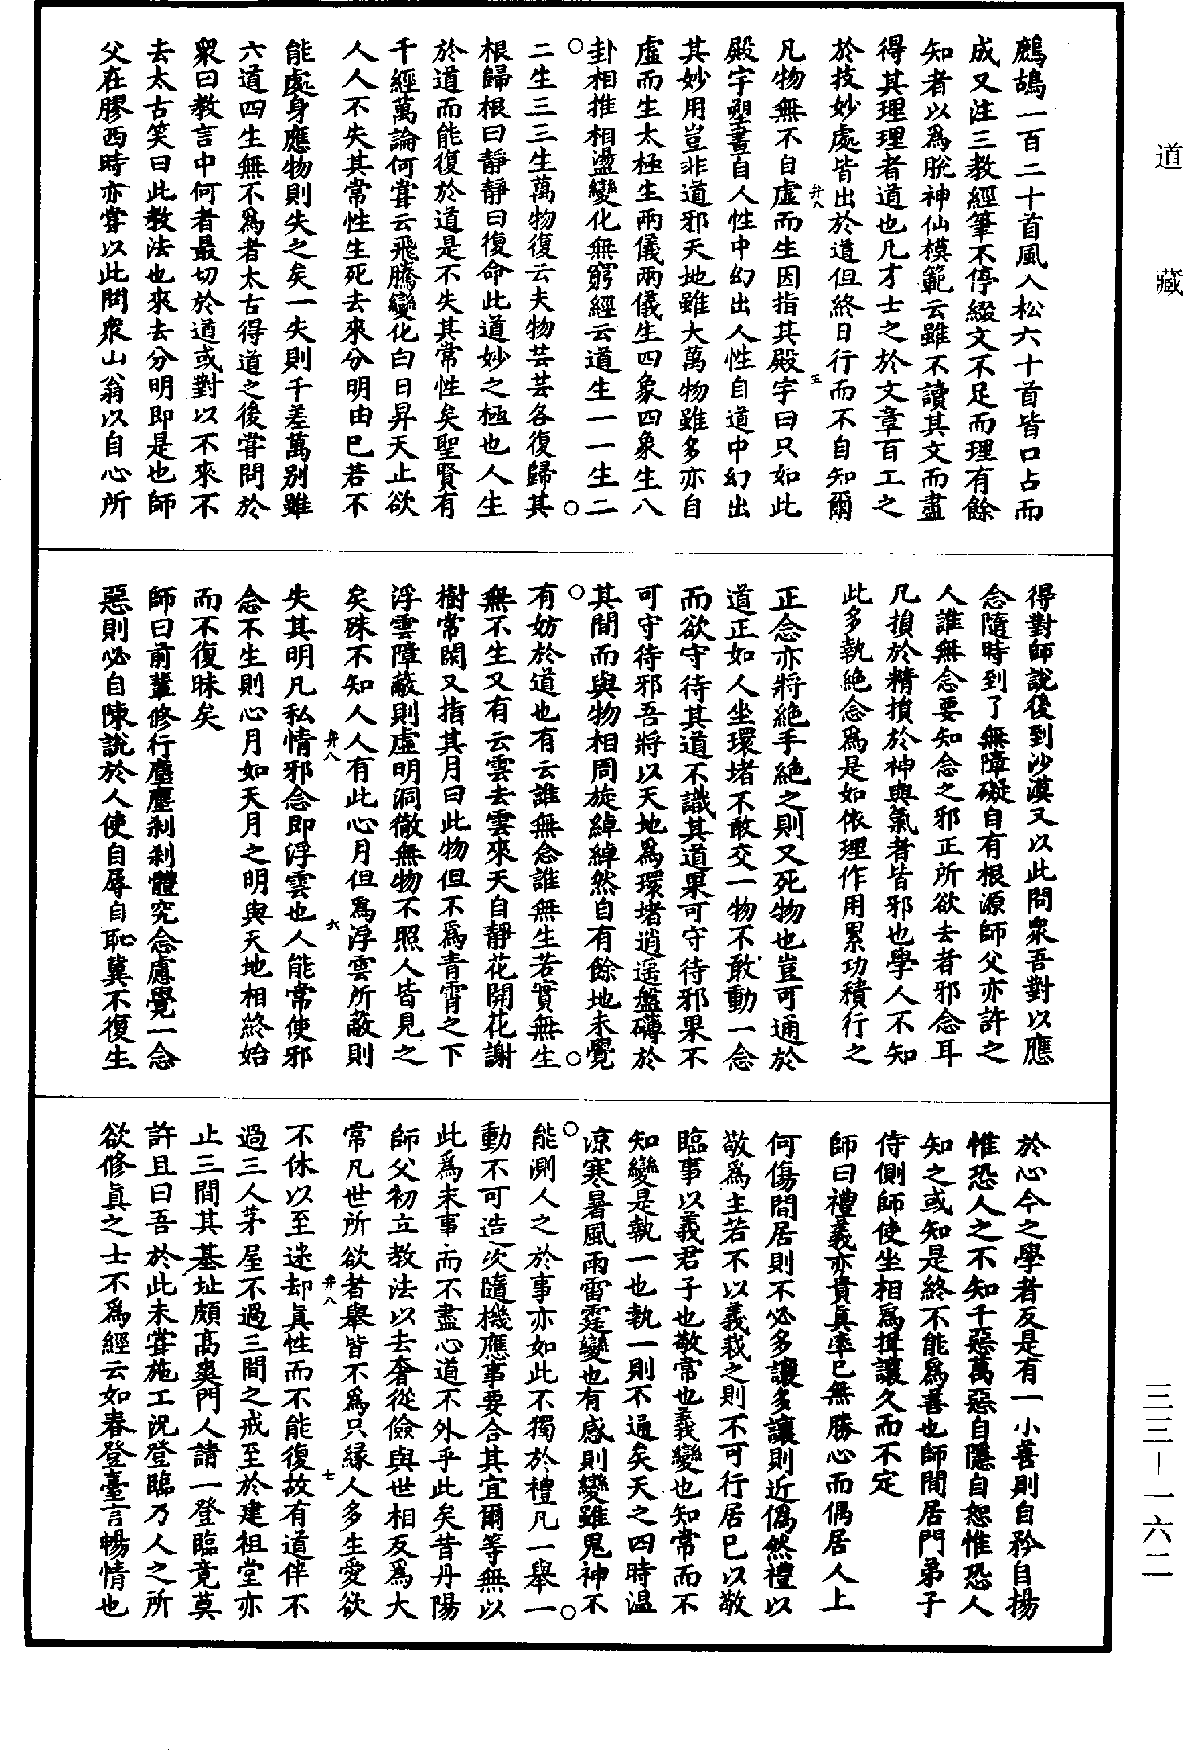 道藏
鷓鴣一百二十首風入松六十首皆口占而
成又注三教經筆不停綴文不足而理有餘
知者以爲脫神仙模範云雖不讀其文而盡
得其理理者道也凡才士之於文章百工之
於技妙處皆出於道但終日行而不自知爾
弁八
五
凡物無不自虛而生因指其殿宇曰只如此
殿宇塑畫自人性中幻出人性自道中幻出
其妙用豈非道邪天地雖大萬物雖多亦自
虛而生太極生兩儀兩儀生四象四象生八
卦相推相盪變化無窮經云道生一一生二
二生三三生萬物復云夫物芸芸各復歸其
根歸根曰靜靜曰復命此道妙之極也人生
於道而能復於道是不失其常性矣聖賢有
千經萬論何嘗云飛騰變化白日昇天止欲
人人不失其常性生死去來分明由已若不
能處身應物則失之矣一失則千差萬別雖
六道四生無不爲者太古得道之後嘗問於
衆曰教言中何者最切於道或對以不來不
去太古笑曰此教法也來去分明即是也師
父在膠西時亦嘗以此問衆山翁以自心所
得對師說後到沙漠又以此問衆吾對以應
念隨時到了無障礙自有根源師父亦許之
人誰無念要知念之邪正所欲去者邪念耳
凡損於精損於神與氣者皆邪也學人不知
此多執絶念爲是如依理作用累功積行之
正念亦將絶乎絶之則又死物也豈可通於
道正如人坐環堵不敢交一物不敢動一念
而欲守待其道不識其道果可守待邪果不
可守待邪吾將以天地爲環堵逍遥盤礴於
其間而與物相周旋綽綽然自有餘地未覺
有妨於道也有云誰無念誰無生若實無生
無不生又有云雲去雲來天自靜花開花謝
樹常閑又指其月曰此物但不爲青霄之下
浮雲障蔽則虛明洞徹無物不照人皆見之
矣殊不知人人有此心月但爲浮雲所蔽則
弁八
六
失其明凡私情邪念即浮雲也人能常使邪
念不生則心月如天月之明與天地相終始
而不復昧矣
師曰前輩修行塵塵剎剎體究念慮覺一念
惡則必自陳說於人使自辱自恥冀不復生
於心今之學者反是有一小善則自矜自揚
惟恐人之不知千惡萬惡自隱自恕惟恐人
知之或知是終不能爲善也師間居門弟子
侍側師使坐相爲揖讓久而不定
師曰禮義亦貴真率已無勝心而偶居人上
何傷間居則不必多讓多讓則近僞然禮以
敬爲主若不以義裁之則不可行居已以敬
臨事以義君子也敬常也義變也知常而不
知變是執一也執一則不通矣天之四時溫
涼寒暑風雨雷霆變也有感則變雖鬼神不
能測人之於事亦如此不獨於禮凡一舉一
動不可造次隨機應事要合其宜爾等無以
此爲末事而不盡心道不外乎此矣昔丹陽
師父初立教法以去奢從儉與世相反爲大
常凡世所欲者舉皆不爲只緣人多生愛欲
弁八
七
不休以至迷却真性而不能復故有道伴不
過三人茅屋不過三間之戒至於建祖堂亦
止三間其基址頗高爽門人請一登臨竟莫
許且曰吾於此未嘗施工況登臨乃人之所
欲修真之士不爲經云如春登臺言暢情也
三三—一六二